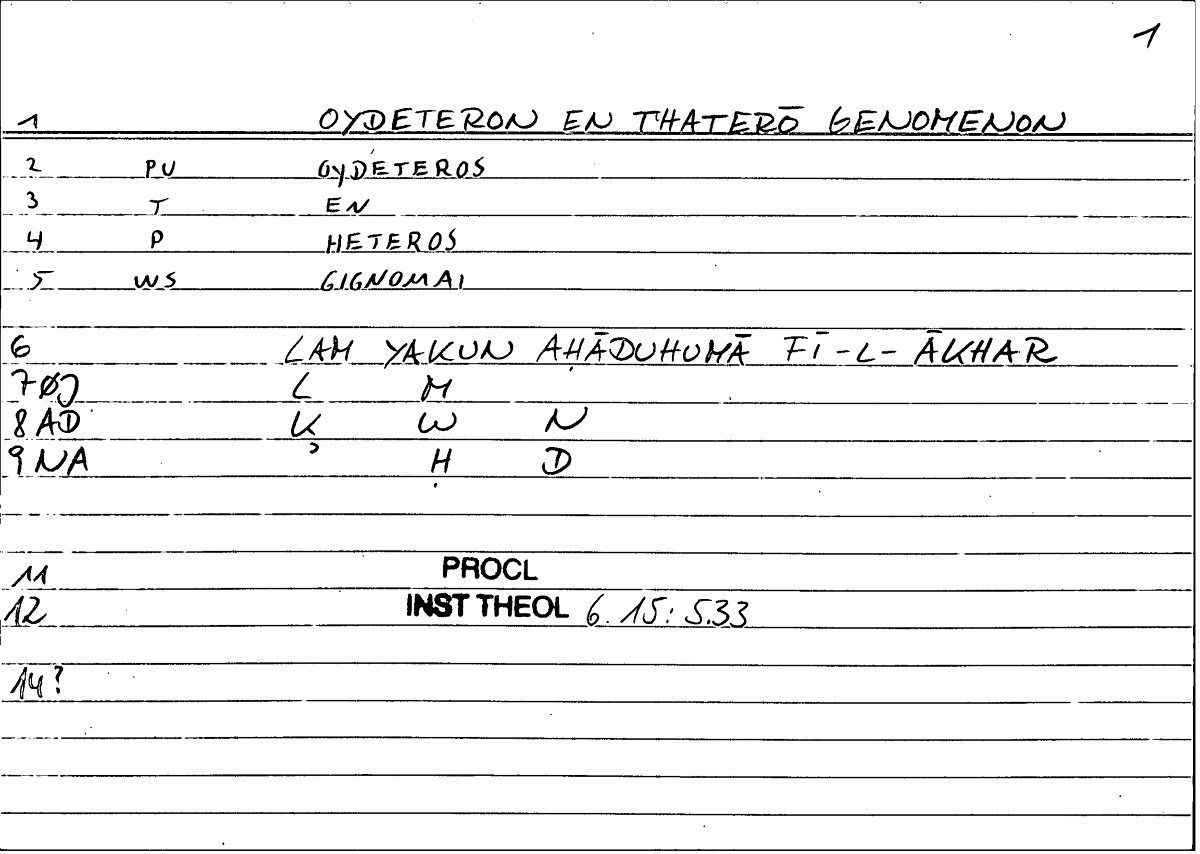 1
1 OYDETERON EN THATERŌ GENOMENON
2 PU OYDETEROS
3 T EN
4 P HETEROS
5 WS GIGNOMAI
6 LAM YAKUN AḤĀDUHUMĀ FĪ-L-ĀKHAR
7 ØJ L M
8 AD K W N
9 NA ʾ Ḥ D
11 PROCL
12 INST THEOL 6.15: 5.33
14?